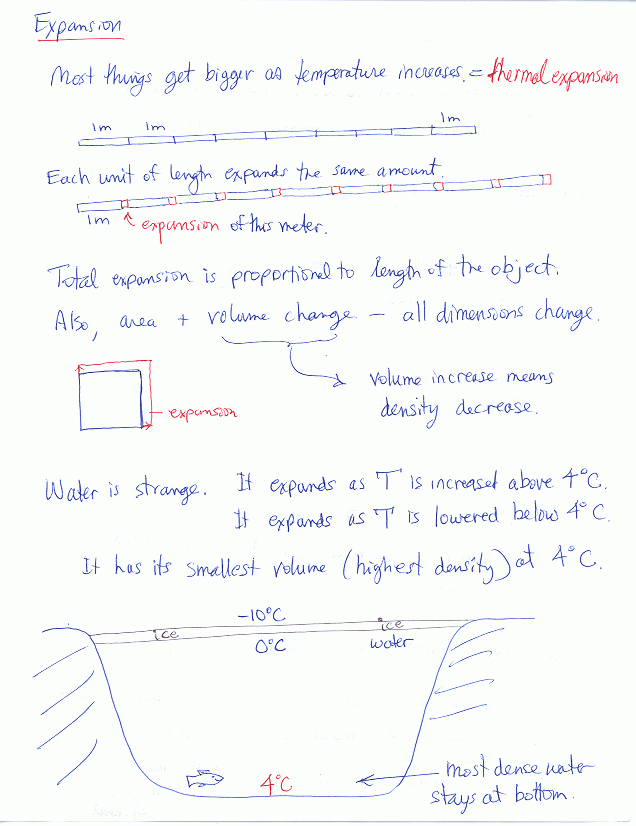 Expansion
Most things get bigger as temperature increases. = thermal expansion
1m 1m 1m
Each unit of length expands the same amount.
1m expansion of this meter.
Total expansion is proportional to length of the object.
Also, area + volume change - all dimensions change.
volume increase means
expansion
density decrease.
Water is strange. It expands as T is increased above 4°C.
It expands as T is lowered below 4°C.
It has its smallest volume (highest density) at 4°C.
-10°C
ice ice
0°C water
4°C
most dense water
stays at bottom.